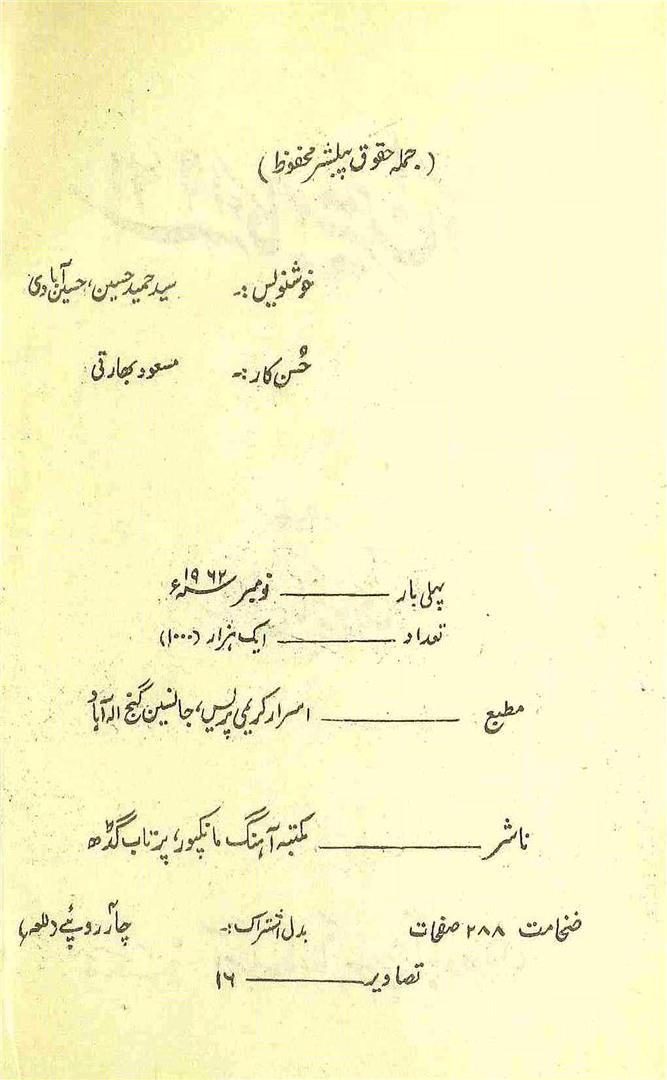 (جملہ حقوق پبلشر محفوظ)
خوشنویس :۔ سید حمید حسین، حسین آبادی
حُسن کار :۔ مسعود بھارتی
پہلی بار ــــــــ نومبر ۱۹۶۲ء
تعداد ــــــــ ایک ہزار (۱۰۰۰)
مطبع ــــــــ اسرار کریمی پریس، جانسین گنج الہ آباد
ناشر ــــــــ مکتبہ آہنگ مانکپور، پرتاب گڈھ
ضخامت ۲۸۸ صفحات بدل اشتراک :۔ چار روپئے
تصاویر ــــــــ ۱۶